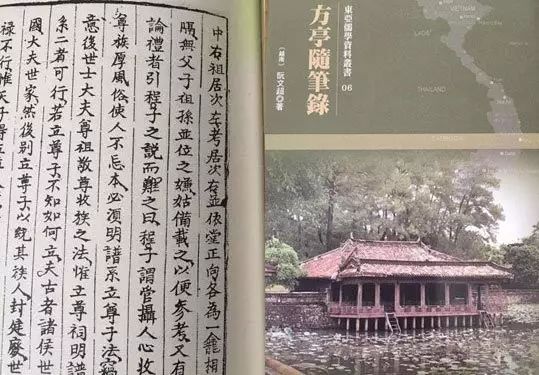 中右祖居次左考居次右並依堂正向各為一龕相
隔無父子祖孫並位之嫌姑備載之以便參考又有
論禮者引程子之説而難之曰程子謂管攝人心收
尊族厚風俗使人不忘本必須明譜系立尊子法竊
意後世士大夫尊祖敬尊收族之法惟立尊祠明譜
系二者可行若立尊子不知如何立夫古者諸侯世
國大夫世家然後別立尊子以統其族人封建廢世
祿不行惟天子得立
東亞儒學資料叢書 06
方亭隨筆錄
〔越南〕阮文超 著
VIETNAM
LAOS
THAILAND
CAMBODIA